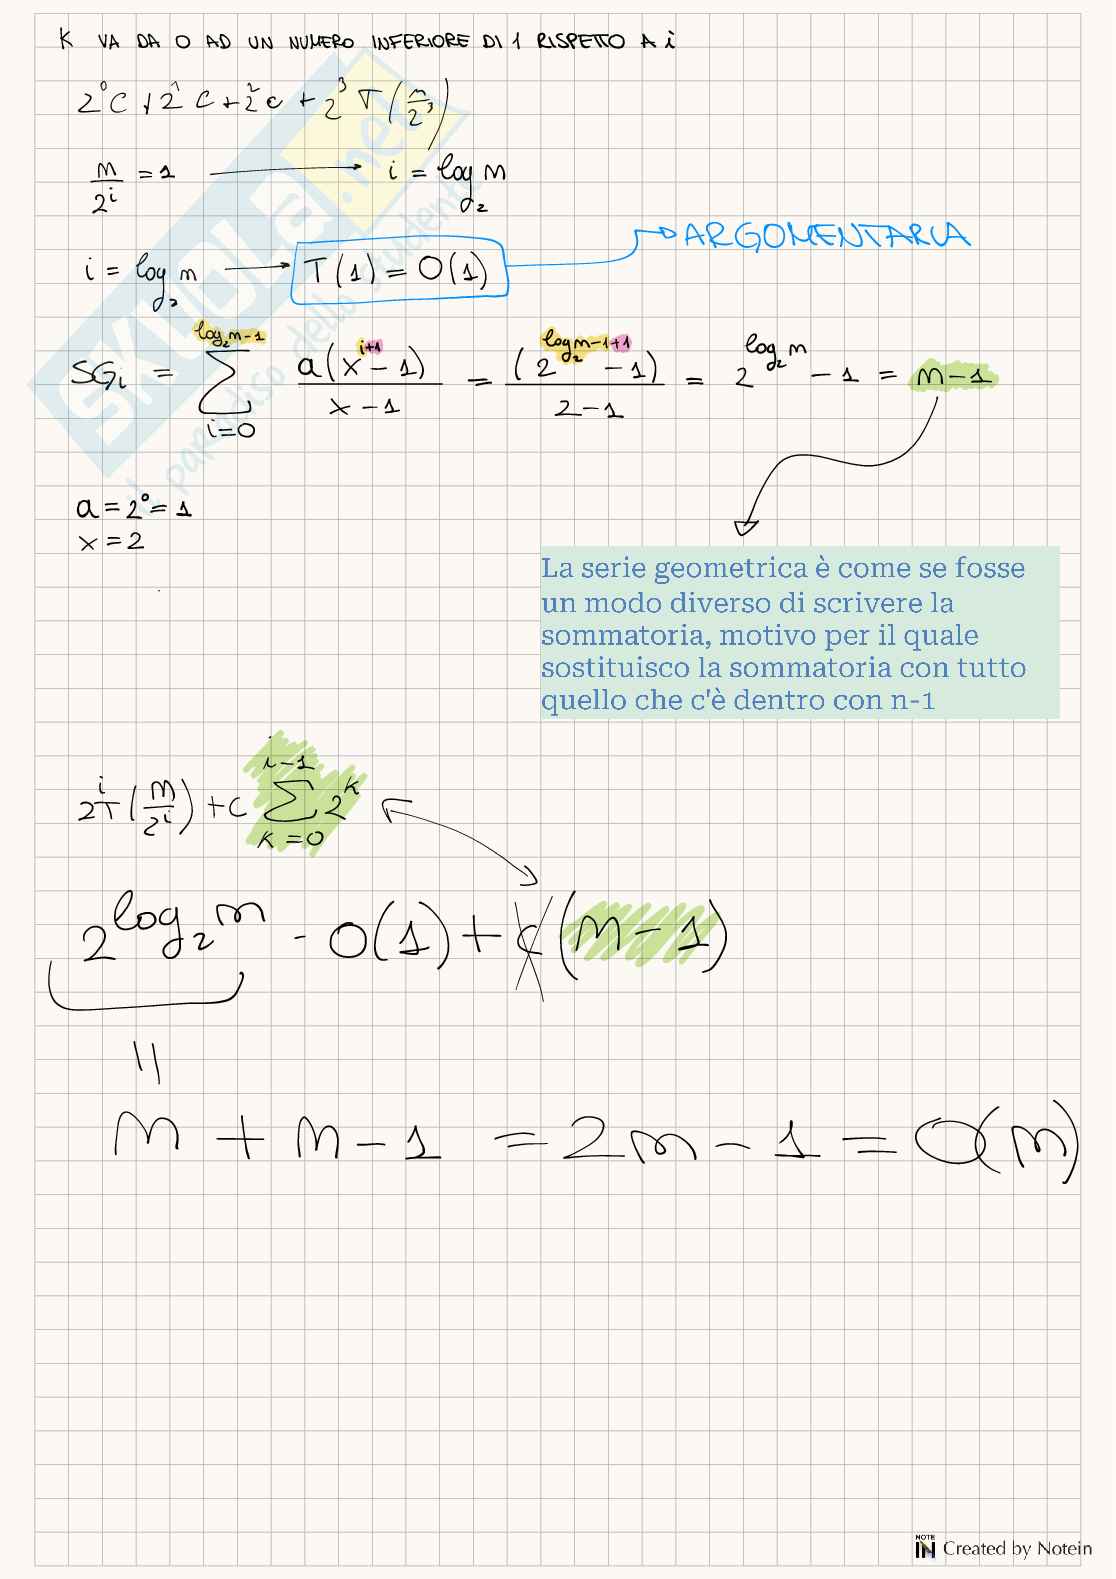 K VA DA 0 AD UN NUMERO INFERIORE DI 1 RISPETTO A i
2⁰C + 2¹C + 2²c + 2³ T(n/2³)
n/2ⁱ = 1 → i = log₂ n
i = log₂ n → T(1) = O(1) → ARGOMENTARLA
SGᵢ = ∑_{i=0}^{log₂n-1} a(x^{i+1} - 1)/(x - 1) = (2^{log₂n-1+1} - 1)/(2-1) = 2^{log₂n} - 1 = n-1
a = 2⁰ = 1
x = 2
La serie geometrica è come se fosse
un modo diverso di scrivere la
sommatoria, motivo per il quale
sostituisco la sommatoria con tutto
quello che c'è dentro con n-1
2ⁱT(n/2ⁱ) + c ∑_{k=0}^{i-1} 2^k
2^{log₂n} · O(1) + c (n-1)
=
n + n - 1 = 2n - 1 = O(n)
SKUOLA.net
il paradiso dello studente
NOTE IN Created by Notein